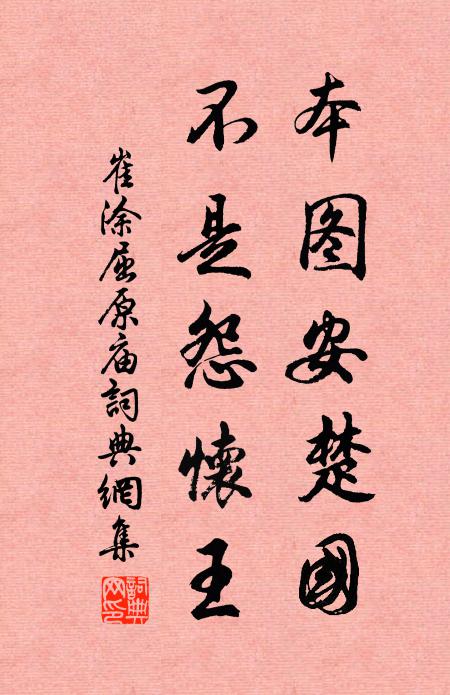 本图安楚國
不是怨懷王
崔涂屈原庙詞典網集
詞典网印